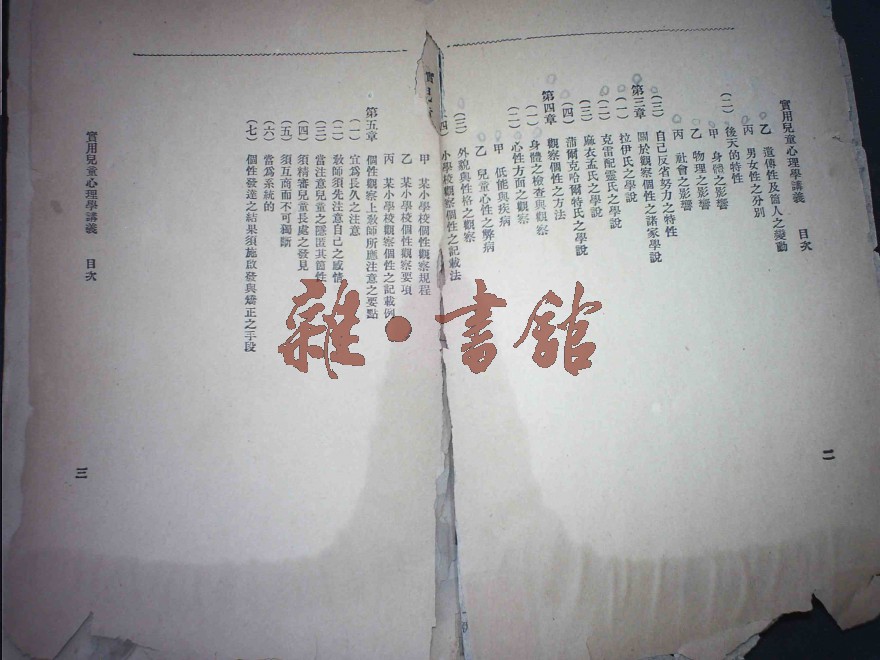 實用兒童心理學講義 目次
二
乙 遺傳性及箇人之變動
丙 男女性之分別
(二) 後天的特性
甲 身體之影響
乙 物理之影響
丙 社會之影響
(三) 自己反省努力之特性
第三章 關於觀察個性之諸家學說
(一) 拉伊氏之學說
(二) 克雷配靈氏之學說
(三) 麻衣孟氏之學說
(四) 蒲爾克哈爾特氏之學說
第四章 觀察個性之方法
(一) 身體之檢查與觀察
(二) 心性方面之觀察
甲 低能與疾病
乙 兒童心性之弊病
(三) 外貌與性格之觀察
(四) 小學校觀察個性之記載法
甲 某小學校個性觀察規程
乙 某小學校個性觀察要項
丙 某小學校觀察個性之記載例
第五章 個性觀察上教師所應注意之要點
(一) 宜為長久之注意
(二) 教師須先注意自己之感情
(三) 當注意兒童之隱匿其箇性
(四) 須精審兒童長處之發見
(五) 須互商而不可獨斷
(六) 當為系統的
(七) 個性發達之結果須施啟發與矯正之手段
實用兒童心理學講義 目次
三
雜·書館